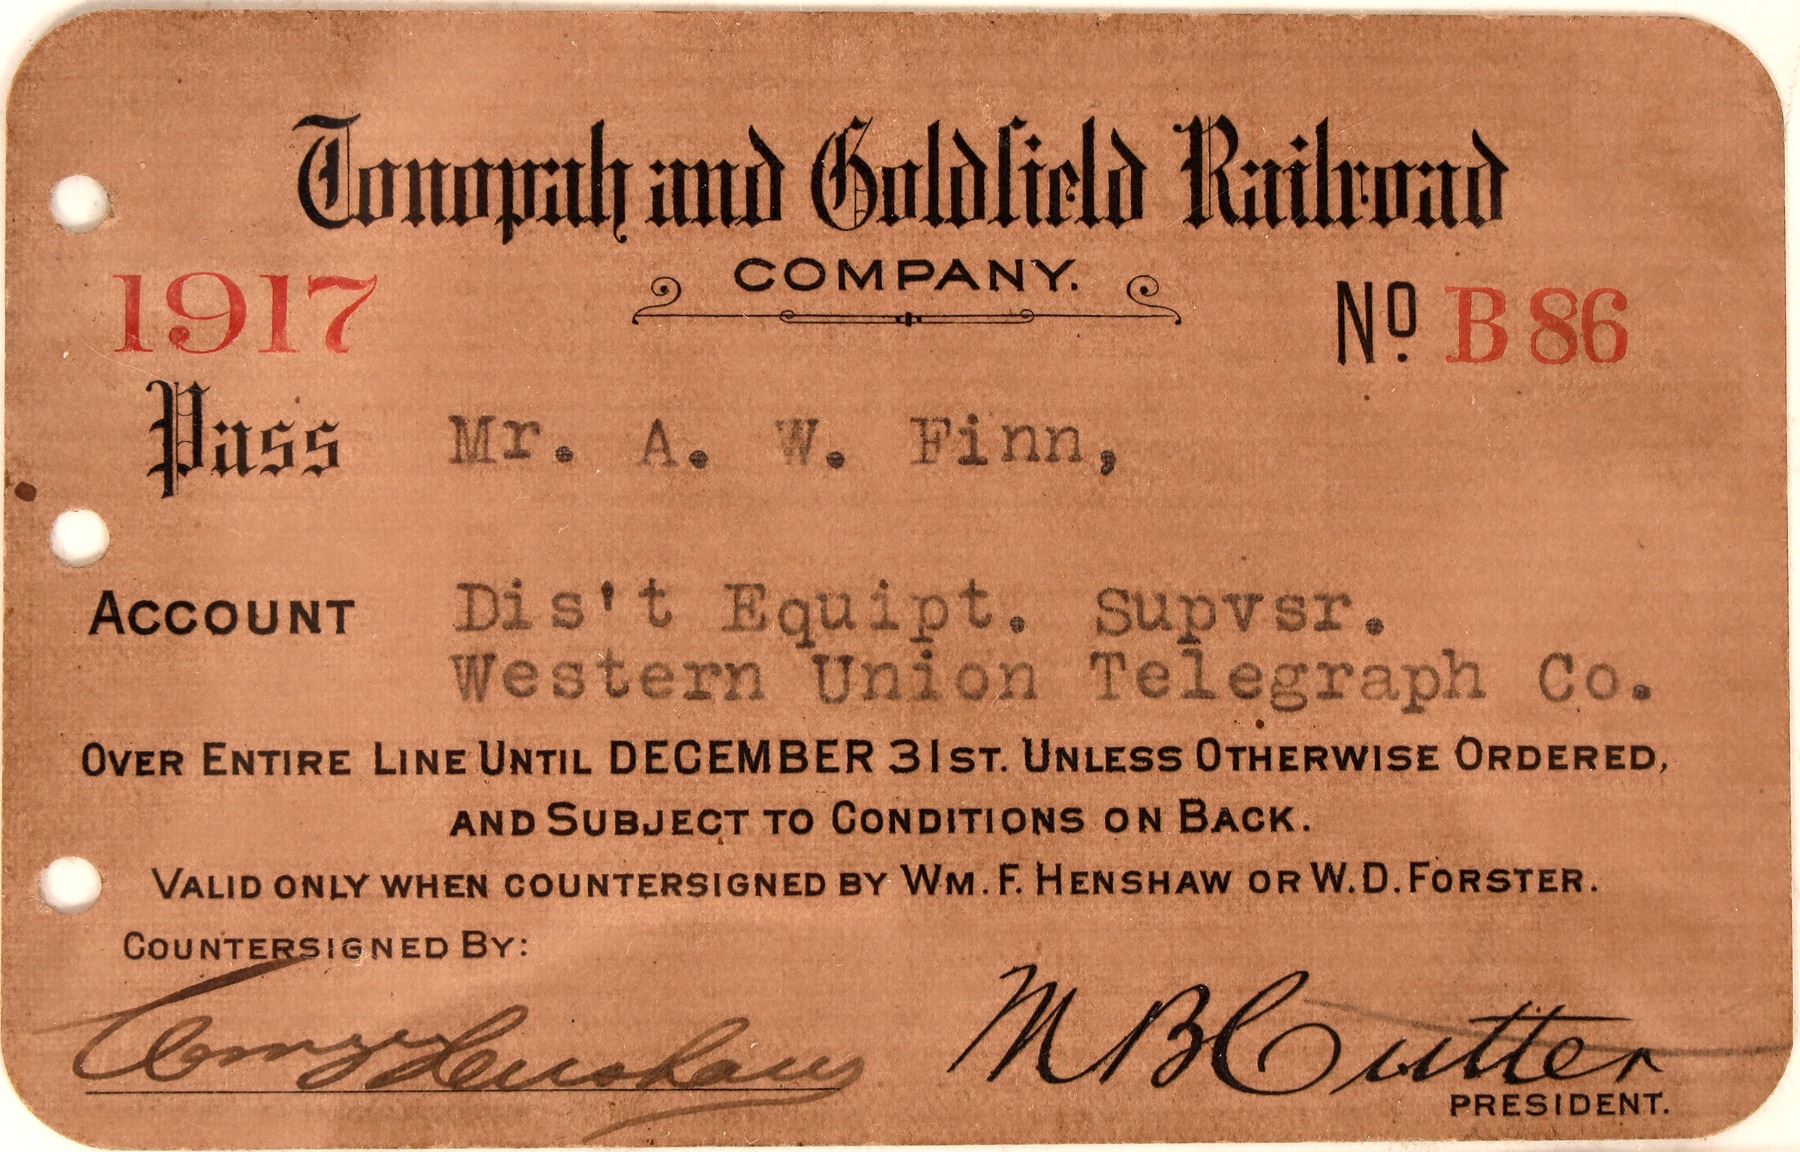 Tonopah and Goldfield Railroad
COMPANY.
1917
No. B 86
Pass Mr. A. W. Finn,
ACCOUNT Dis't Equipt. Supvsr.
Western Union Telegraph Co.
OVER ENTIRE LINE UNTIL DECEMBER 31ST. UNLESS OTHERWISE ORDERED,
AND SUBJECT TO CONDITIONS ON BACK.
VALID ONLY WHEN COUNTERSIGNED BY WM. F. HENSHAW OR W.D. FORSTER.
COUNTERSIGNED BY:
Henshaw
M B Cutter
PRESIDENT.